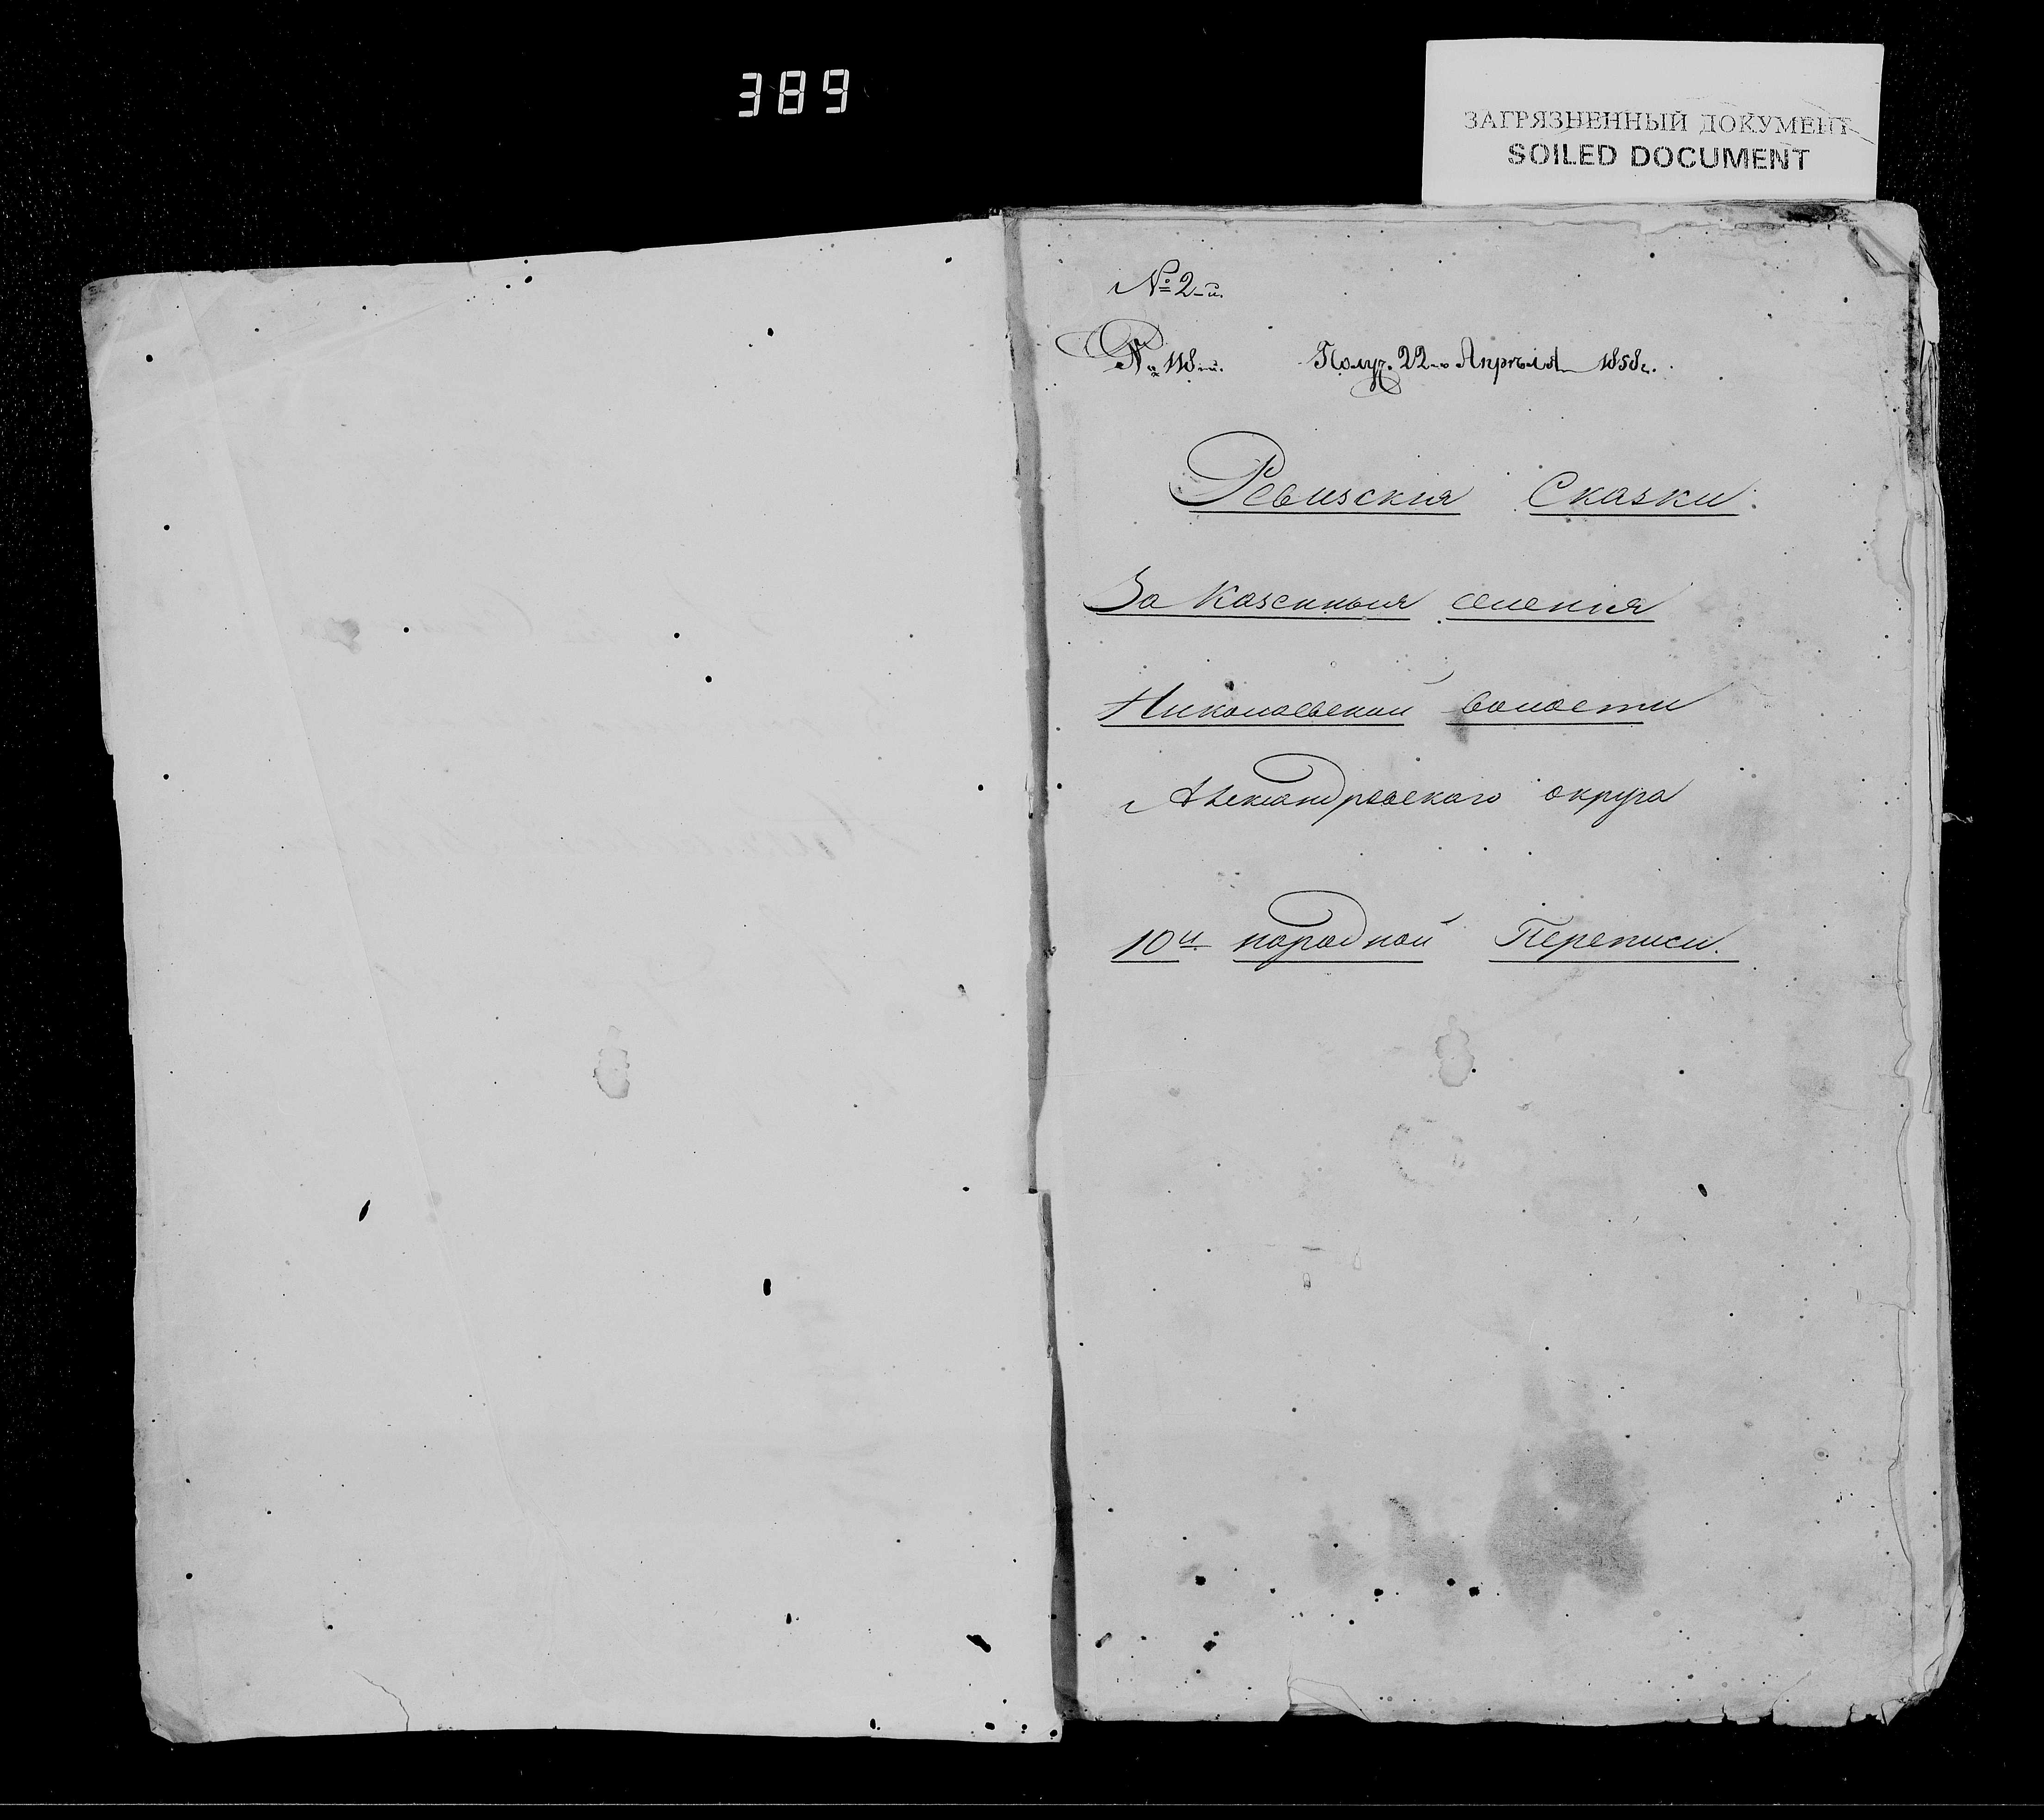 389
ЗАГРЯЗНЕННЫЙ ДОКУМЕНТ
SOILED DOCUMENT
№ 2-й.
№ 118-й. Получ. 22-го Апрѣля 1858 г.
Ревизскія Сказки
За казенныя селенія
Николаевской волости
Александровскаго округа
10й народной Переписи.